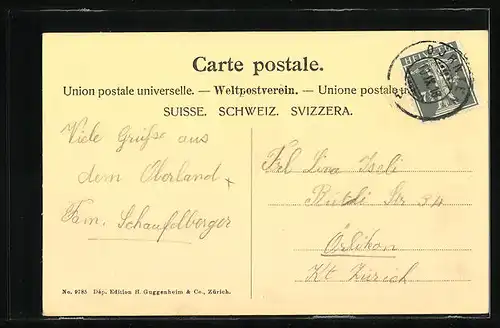 Carte postale.
Union postale universelle. — Weltpostverein. — Unione postale
SUISSE. SCHWEIZ. SVIZZERA.
Viele Grüsse aus
dem Oberland
Fam. Schaufelberger
Frl Lina Iseli
Rütli Str 34
Örlikon
Kt Zürich
No. 9785 Dép. Edition H. Guggenheim & Co., Zürich.